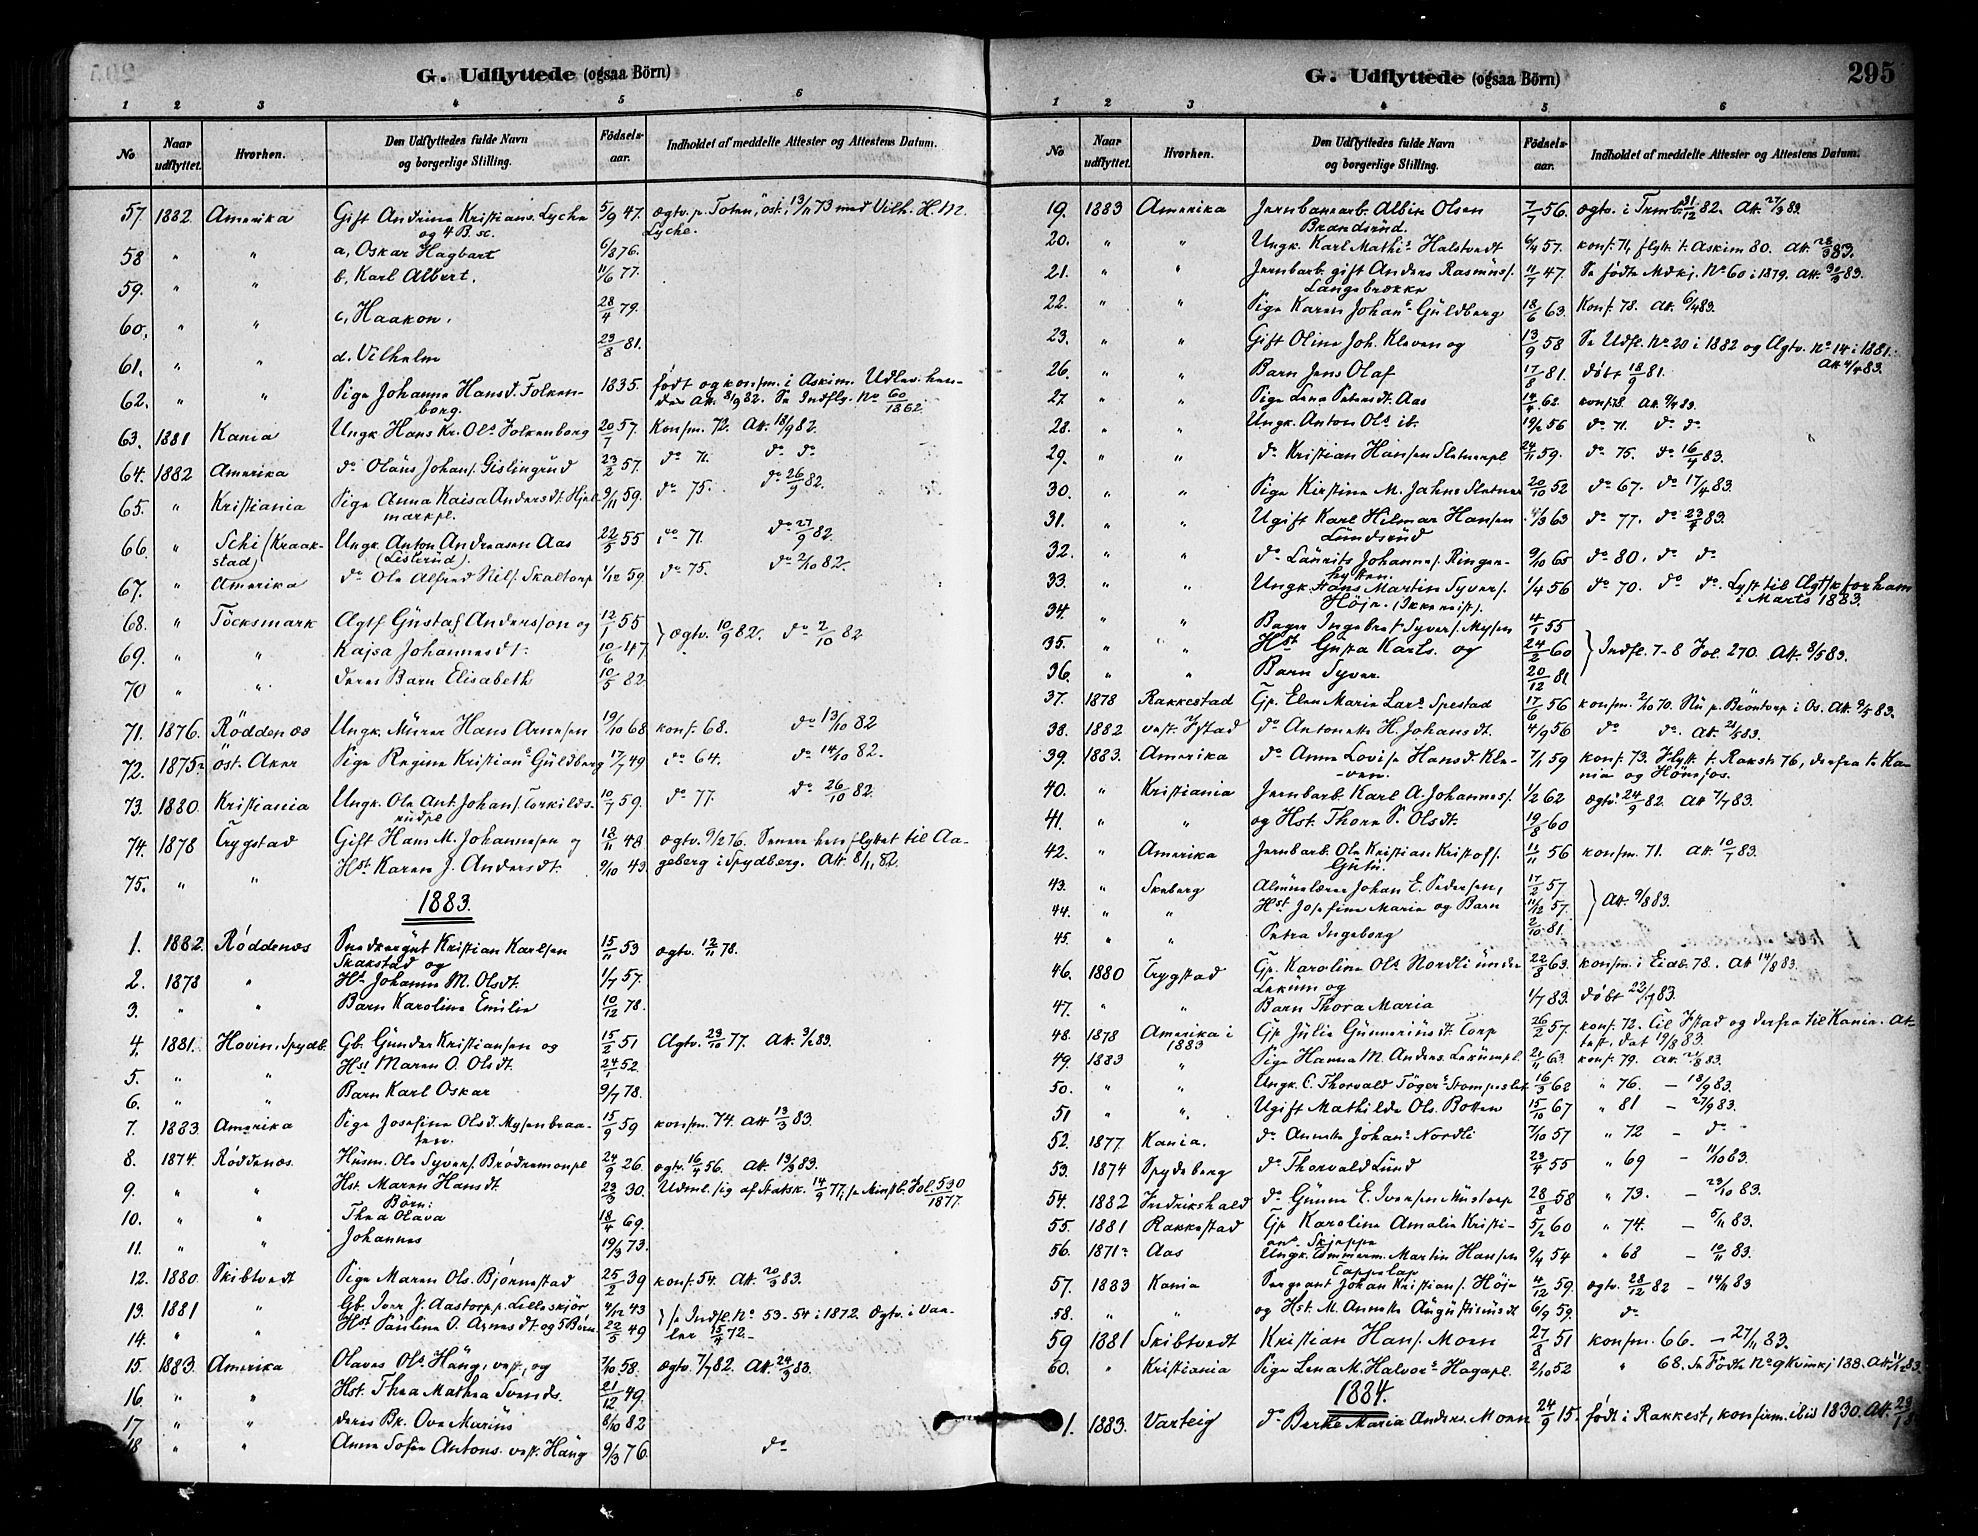 G. Udflyttede (ogsaa Börn)
1 2 3 4 5 6
No Naar udflyttet. Hvorhen. Den Udflyttedes fulde Navn og borgerlige Stilling. Födsels-aar. Indholdet af meddelte Attester og Attestens Datum.
57. 1882. Amerika Gift Andrine Kristians. Lyche 5/9 47. ægtv. p. Toten, öst. 13/11 73 med Vilh. H. M.
og 4 B. sc. Lyche.
58 " " a, Oskar Hagbart 6/8 76.
59. " " b. Karl Albert. 11/6 77.
60. " " c, Haakon. 28/4 79.
61. " " d. Vilhelm 23/8 81.
62. " " Pige Johanne Hansd. Folken- 1835. født og konfm. i Askim. Udlev. hen-
borg. des Att. 8/9 82. Se Indfl. No 60/1862.
63. 1881 Kania Ungk. Hans Kr. Ols. Folkenborg 20/1 57. Konfm. 72. Att. 18/9 82.
64. 1882 Amerika do Olaus Johans. Gislingrud 23/2 57. do 71. do do
65. " Kristiania Pige Anna Kaisa Andersdt. Hjel- 9/11 59. do 75. do 26/9 82.
markpl.
66. " Schi (Kraak- Ungk. Anton Andreasen Aas 22/5 55 do 71. do 27/9 82.
stad) (Listerud).
67. " Amerika do Ole Alfred Nils. Skaltorp 1/12 59. do 75. do 2/10 82.
68. " Töcksmark Agtf Gustaf Andersson og 12/1 55 } ægtv. 10/9 82. do 2/10 82
69. " " Kajsa Johannesdt. 10/6 47
70 " " deres Barn Elisabeth 10/5 82.
71. 1876. Röddenæs Ungk. Murer Hans Arnesen 19/10 68 konf. 68. do 13/10 82
72. 1875? öst. Aker Pige Regine Kristians Guldberg 17/7 49 do 64. do 14/10 82.
73. 1880. Kristiania Ungk. Ole Ant. Johans. Torkilds- 10/7 59. do 77. do 26/10 82.
rudpl
74. 1878 Trygstad Gift Hans M. Johannesen og 12/11 48 ægtv. 9/12 76. Senere hen flyttet til Aa-
75. " " Hst. Karen J. Andersdt. 9/10 43. geberg i Spydberg. Att. 8/11 82.
1883.
1. 1882. Røddenæs Snedkergut Kristian Karlsen 15/11 53 ægtv. 12/11 78.
Skakstad og
2. 1878 " Ht. Johanne M. Olsdt. 1/7 57.
3. " " Barn Karoline Emilie 10/12 78.
4. 1881. Hovin, Spydb. Gb. Gunder Kristiansen og 15/2 51 Agtv. 29/10 77. Att. 3/2 83.
5. " " Hst Maren O. Olsdt. 24/1 52.
6. " " Barn Karl Oskar 9/7 78.
7. 1883 Amerika Pige Josefine Olsd. Mysenbraa- 15/9 59 konfm. 74. Att 13/3 83.
ten.
8. 1874. Røddenæs. Husm. Ole Syvers. Brødremonpl 24/9 26. ægtv. 16/4 56. Att. 19/3 83.
9. " " Hst. Maren Hansdt. 23/3 30. Udml. sig af Statsk. 14/9 77, se Minstb. Fol. 530/1877.
Børn:
10. " " Thea Olava 18/4 69.
11. " " Johannes 19/3 73.
12. 1880. Skibtvedt Pige Maren Ols. Bjørnestad 25/2 39 konf. 54. Att. 20/3 83.
13. 1881 " Gb. Iver J. Aastorp p. Lilleskjör 4/12 43 } se Indfl. No 53-54 i 1872. Ægtv. i Vaa-
14. " " Hst. Pauline O. Arnesdt. og 5 Børn. 22/5 49 ler 15/4 72.
15. 1883. Amerika Olaves Ols. Haug, vest, og 7/10 58. ægtv. 7/7 82. Att. 24/3 83.
16. " " Hst. Thea Mathea Svends. 21/12 49.
17. " " deres Br. Ove Marius 8/10 82
18 " " Anne Sofie Antons. vest. Haug 9/3 76. do
G. Udflyttede (ogsaa Börn) 295
1 2 3 4 5 6
No Naar udflyttet. Hvorhen. Den Udflyttedes fulde Navn og borgerlige Stilling. Födsels-aar. Indholdet af meddelte Attester og Attestens Datum.
19. 1883 Amerika Jernbanearb. Albin Olsen 7/7 56. ægtv. i Trmb. 31/12 82. Att. 27/3 83.
Brandsrud.
20. " " Ungk. Karl Mathis Halstvedt 6/4 57. konf. 71, flytt t. Askim 80. Att. 28/3 83.
21. " " Jernbarb. gift Anders Rasmuss. 11/7 47. Se fødte Mdkj. No 60 i 1879. Att. 30/3 83.
Langebrække
22. " " Pige Karen Johans Guldberg 18/6 63. Konf. 78. Att. 6/4 83.
23. " " Gift Oline Joh. Kleven og 13/9 58 Se Udfl. No 20 i 1882 og Agtv. No 14 i 1881.
Att 4/4 83.
26. " " Barn Jens Olaf 17/8 81. døbt 18/9 81.
27. " " Pige Lena Petersdt. Aas 14/4 62 konf. 78. Att. 9/4 83.
28. " " Ungk. Anton Ols. ib. 19/2 56 do 71. do do
29. " " do Kristian Hansen Sletnerpl 24/11 59. do 75. do 16/4 83.
30. " " Pige Kirstine M. Jahns Sletner 20/10 52 do 67. do 17/4 83.
31. " " Ugift Karl Hilmar Hansen 4/3 63 do 77. do 23/4 83.
Lundsrud
32. " " do Laurits Johannes. Ringen- 9/10 65 do 80. do do
hytten.
33. " " Ungk. Hans Martin Syvers. 1/4 56 do 70. do do. Lyst til Agtsk. for ham
Höje. (Ikke reist). i Marts 1883.
34. " " Bager Ingebret Syvers. Mysen 4/1 55
35. " " Hst Gusta Karls. og 24/2 60 } Indfl. 7-8 Fol. 270. Att. 8/5 83.
36. " " Barn Syver. 20/12 81
37. 1878 Rakkestad Gp. Elen Marie Lars. Spestad 17/6 56 konfm. 2/10 70. Nu p. Bröntorp i Os. Att. 9/5 83.
38. 1882 vest. Ifstad do Antonette H. Johansdt. 4/9 56 do do. Att. 21/5 83.
39. 1883. Amerika do Anne Lovise Hansd. Kle- 7/1 59 konf. 73. Flytt t. Rakst. 76, derfra t. Ka-
ven. nia og Hønefos.
40. " Kristiania Jernbarb. Karl A. Johanness. 1/2 62 ægtv. 24/9 82. Att 7/7 83.
41. " " og Hst. Thora S. Olsdt. 19/8 60
42. " Amerika Jernbarb. Ole Kristian Kristofs. 11/11 56 konfm. 71. Att. 10/7 83.
Gutu.
43. " Skeberg Almuelærer Johan E. Pedersen, 17/2 57 } Att. 9/8 83.
44. " " Hst. Josefine Marie og Barn 11/12 57.
45. " " Petra Ingeborg 2/10 81.
46. 1880 Trygstad Gp. Karoline Ols Nordli under 22/3 63. konfm. i Eidb. 78. Att 14/8 83.
Lekum og
47. " " Barn Thora Maria 1/7 83. døbt 22/7 83.
48. 1878 Amerika i Gp. Julie Gunneriusdt. Torp 26/2 57. konf. 72. Til Ifstad og derfra til Kania. At-
1883 test. dat 19/8 83.
49. 1883 " Pige Hanna M. Anders. Lekumpl 21/11 63. konf. 79. Att. 21/8 83.
50. " " Ungk. C. Thorvald Tögers Stompeslet 16/3 62 " 76. – 18/9 83.
51 " " Ugift Mathilde Ols. Botten 15/10 67 " 81 – 27/9 83.
52. 1877. Kania. do Annette Johans Nordli 7/10 57 " 72 – do
53. 1874 Spydeberg do Thorvald Lund 23/4 55 " 69 – 11/10 83.
54. 1882 Fredrikshald do Gunne E. Iversen Mustorp 28/8 58 " 73. – 23/10 83.
55. 1881 Rakkestad Gp Karoline Amalie Kristi- 5/2 60 " 74. – 5/11 83.
ans. Skjeppe
56. 1871? Aas Ungk. Tømmerm. Martin Hansen 9/4 54 " 68 – 10/11 83.
Tappelap
57. 1883 Kania Sergeant Johan Kristians. Höje 4/12 59. ægtv. 28/12 82 – 14/11 83
58. " " og Hst. M. Annette Augustinusdt 6/9 59. do
59 1881 Skibtvedt Kristian Hans. Moen 27/8 51 konfm. 66. – 27/11 83.
60. " Kristiania Pige Lena M. Halvors. Hagapl. 2/10 52 " 68. Se Fødte No 9 Kvinkj 188. Att 11/12 83.
1884.
1. 1883. Varteig do Berte Maria Anders. Moen 24/9 15. født i Rakkest, konfirm. ibid 1830. Att. 23/1 8